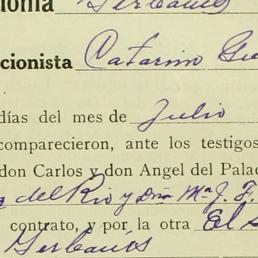 onia Gerbanos
cionista Catarino Gu
días del mes de Julio
comparecieron, ante los testigos
don Carlos y don Angel del Palac
del Rio y Dña Mª J. F.
contrato, y por la otra El s
Gerbanós